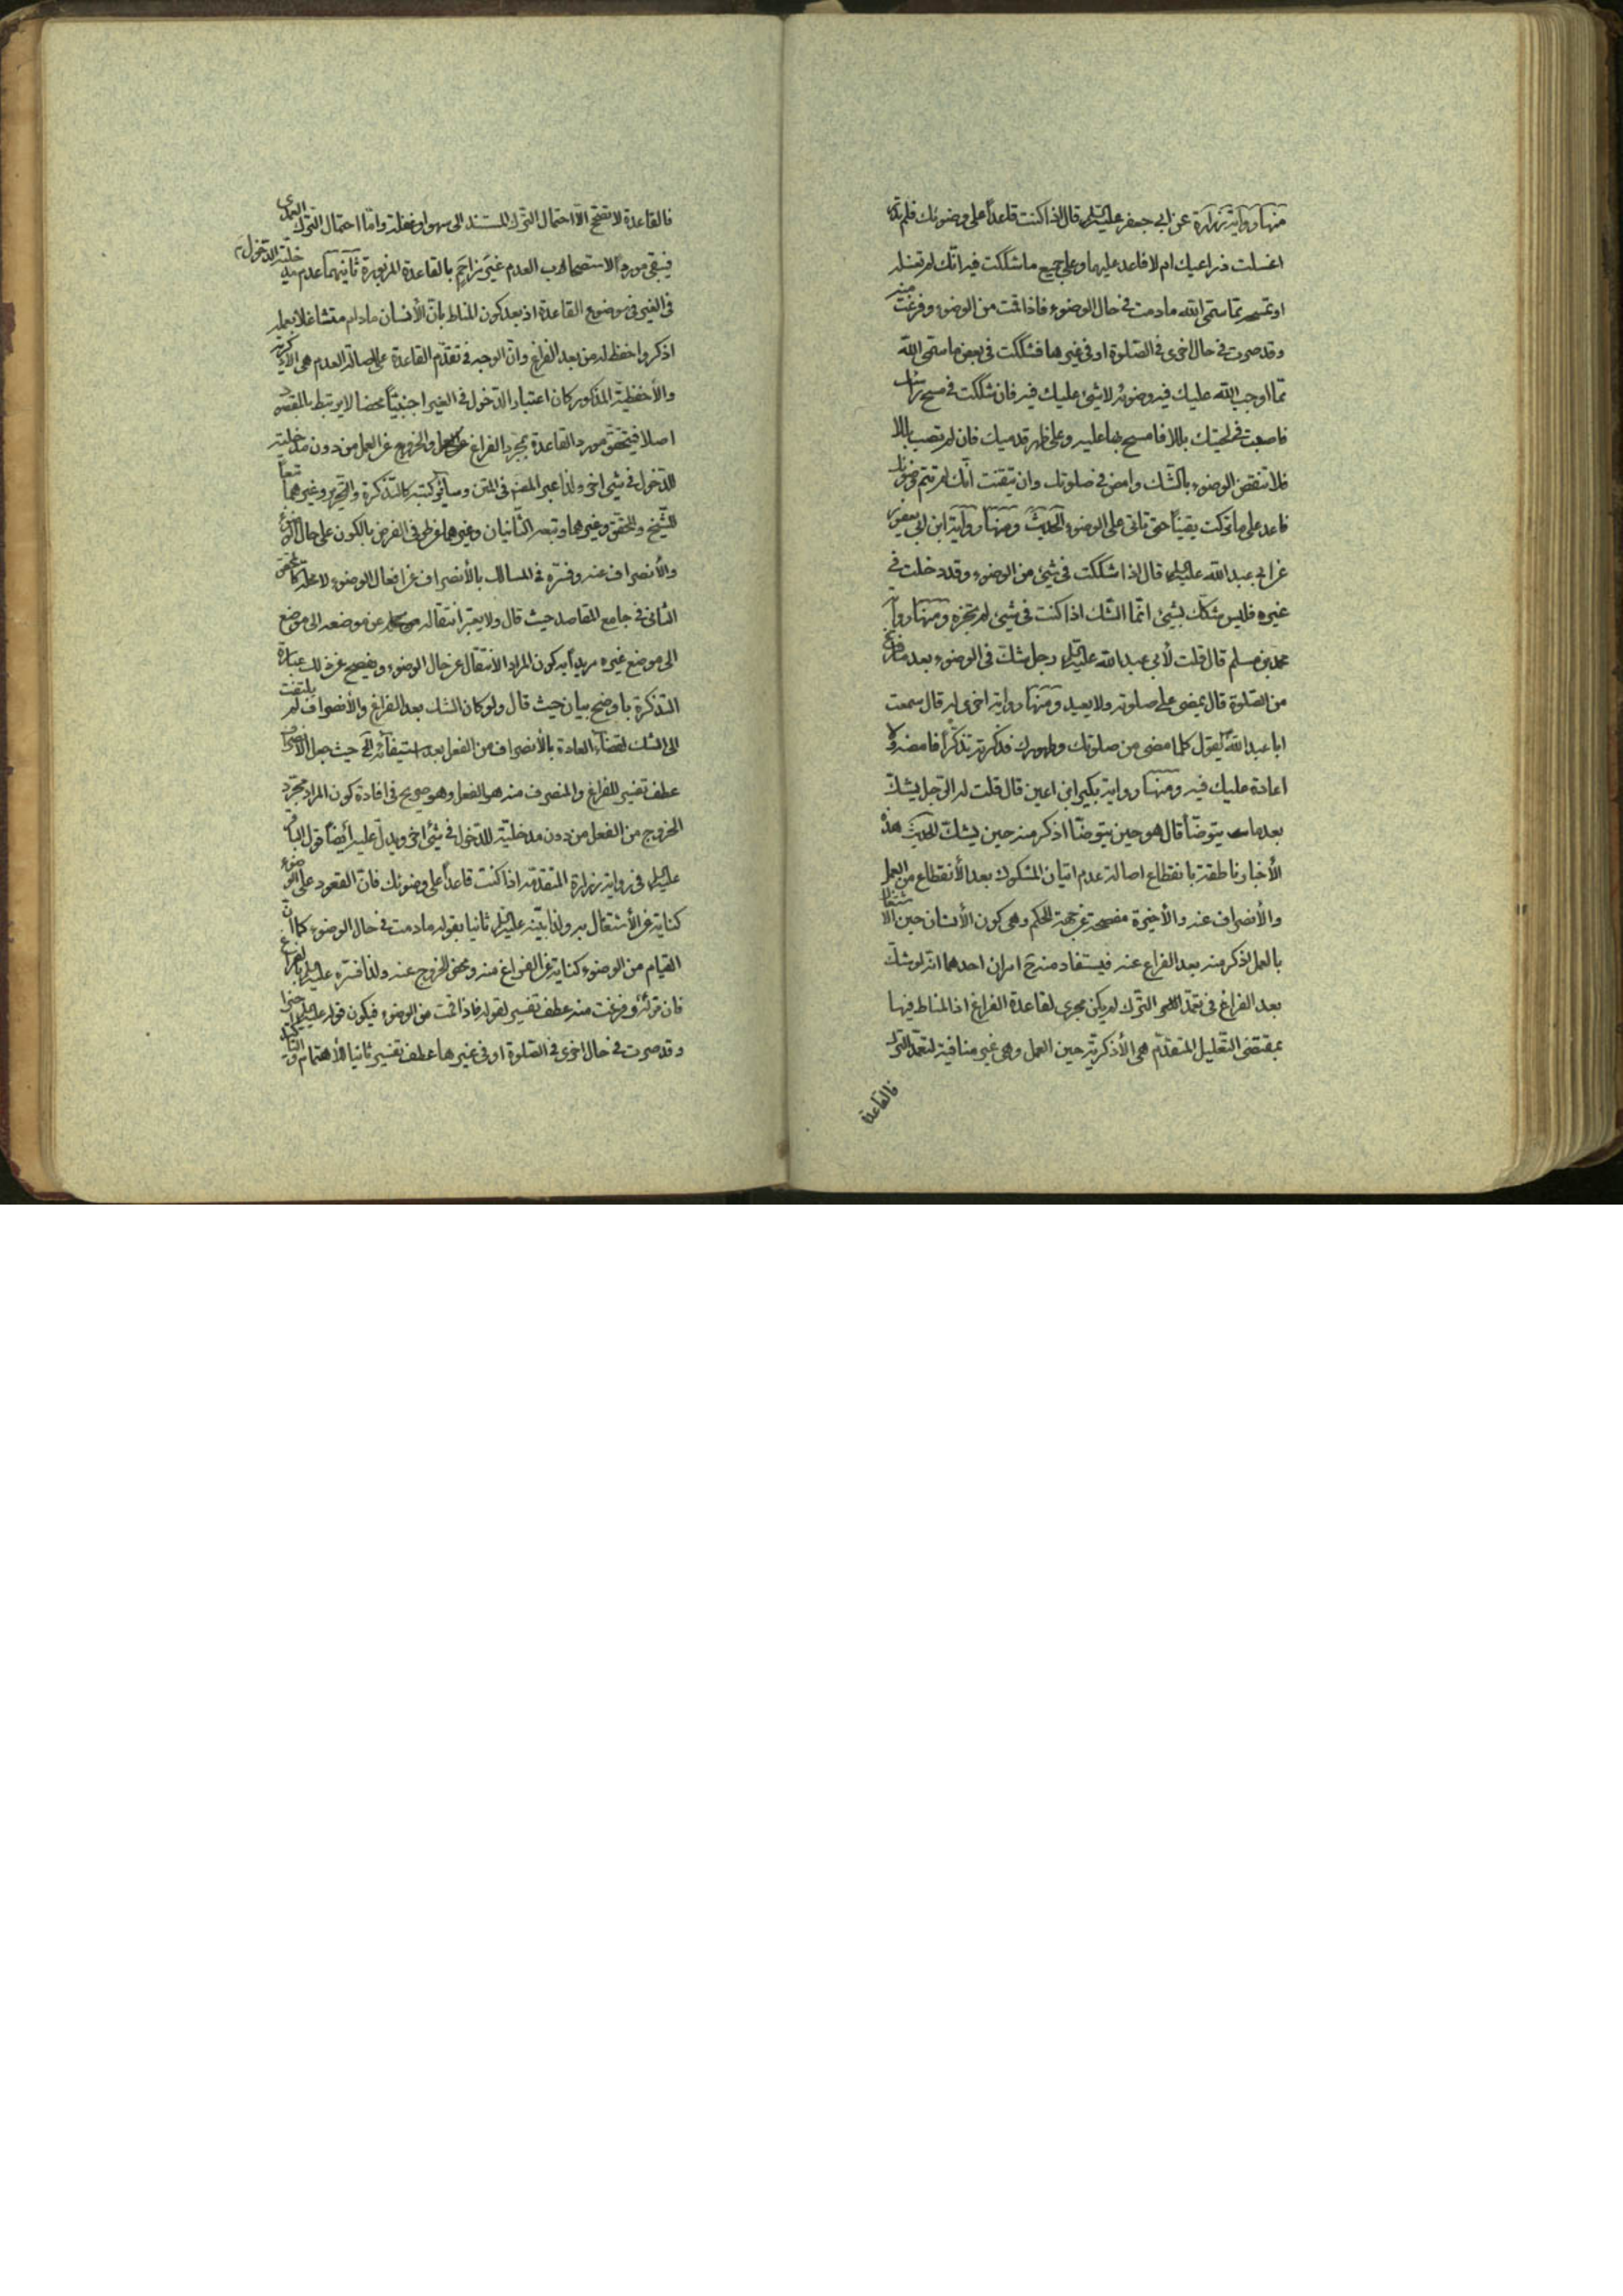 منها رواية زرارة عن ابي جعفر عليه السلام قال اذا كنت قاعداً على وضوئك فلم تدر
اغسلت ذراعيك ام لا فاعد عليهما وعلى جميع ما شككت فيه انّك لم تغسله
او تمسحه ممّا سمّى الله مادمت في حال الوضوء فاذا قمت من الوضوء وفرغت منه
وقد صرت في حال اخرى في الصّلوة او في غيرها فشككت في بعض ما سمّى الله
ممّا اوجب الله عليك فيه وضوئه لا شيئ عليك فيه فان شككت في مسح راسك
فاصبت في لحيتك بللا فامسح بها عليه وعلى ظهر قدميك فان لم تصب بللا
فلا تنقض الوضوء بالشّك وامض في صلوتك وان تيقنت انّك لم تتم وضوئك
فاعد على ما تركت يقيناً حتى تاتى على الوضوء الحديث ومنها رواية ابن ابي يعفور
عن ابي عبد الله عليه السلام قال اذا شككت في شيئ من الوضوء وقد دخلت في
غيره فليس شكّك بشيئ انّما الشّك اذا كنت في شيئ لم تجزه ومنها رواية
محمد بن مسلم قال قلت لأبي عبد الله عليه السلام رجل شك في الوضوء بعد ما فرغ
من الصّلوة قال يمضى على صلوته ولا يعيد ومنها رواية اخرى له قال سمعت
ابا عبد الله يقول كلما مضى من صلوتك وطهورك فذكرته تذكّراً فامضه ولا
اعادة عليك فيه ومنها رواية بكير ابن اعين قال قلت له الرّجل يشكّ
بعد ما يتوضّأ قال هو حين يتوضّأ اذكر منه حين يشكّ الحديث هذه
الأخبار ناطقة بانقطاع اصالة عدم اتيان المشكوك بعد الأنقطاع من العمل
والأنصراف عنه والأخيرة مفصحة عن جهة الحكم وهى كون الأنسان حين الاشتغال
بالعمل اذكر منه بعد الفراغ عنه فيستفاد منه ح امران احدهما انّه لو شكّ
بعد الفراغ في تعمّد الترك لم يكن مجرى لقاعدة الفراغ اذ المناط فيها
بمقتضى التّعليل المتقدّم هى الأذكريّة حين العمل وهى غير منافية لتعمّد الترك
فالقاعدة
فالقاعدة لا تفتح الّا احتمال التّرك المستند الى سهو او غفلة وامّا احتمال التّرك العمدى
فيبقى مورداً لاستصحاب العدم غير مزاحم بالقاعدة المزبورة ثانيهما عدم مدخلية الدّخول
في الغير في موضوع القاعدة اذ بعد كون المناط بانّ الأنسان مادام متشاغلا بعمله
اذكر واحفظ له من بعد الفراغ وانّ الوجه في تقدّم القاعدة على اصالة العدم هى الاذكرية
والأحفظيّة المذكور كان اعتبار الدّخول في الغير اجنبيّاً محضا لا يرتبط بالمقصود
اصلا فيتحقّق مورد القاعدة بمجرّد الفراغ والخروج عن العمل من دون مدخلية
للدّخول في شيئ اخر ولذا عبر المصنف في المتن وسائر كتبه كالتّذكرة والتحرير وغيرهما تبعاً
للشّيخ والمحقّق وغيرهما وتبعه الثّانيان وغيرهما في الفرض بالكون على حال الوضوء
والأنصراف عنه وفسّره في المسالك بالأنصراف عن افعال الوضوء
الثانى في جامع المقاصد حيث قال ولا يعتبر انتقاله عن موضعه الى موضع
الى موضع غيره مريداً به كون المراد الانتقال عن حال الوضوء ويفصح عن ذلك عبارة
التذكرة باوضح بيان حيث قال ولو كان الشك بعد الفراغ والأنصراف لم يلتفت
الى الشك لقضاء العادة بالأنصراف من الفعل بعد استيفائه الخ حيث جعل الأنصراف
عطف تفسير للفراغ والمنصرف منه هو الفعل وهو صريح في افادة كون المراد مجرّد
الخروج من الفعل من دون مدخليّة للدّخول في شيئ اخر ويدلّ عليه أيضاً قول الباقر
عليه السلام في رواية زرارة المتقدّمة اذا كنت قاعداً على وضوئك فانّ القعود على الوضوء
كناية عن الأشتغال به ولذا بيّنه عليه السلام ثانيا بقوله مادمت في حال الوضوء كما انّ
القيام من الوضوء كناية عن الفراغ منه ومحض الخروج عنه ولذا فسّره عليه السلام بالفراغ
فان قوله وفرغت منه عطف تفسير لقوله فاذا قمت من الوضوء فيكون قوله عليه السلام اخيراً
وقد صرت في حال اخرى في الصّلوة او في غيرها عطف تفسير ثانيا للأهتمام والتاكيد